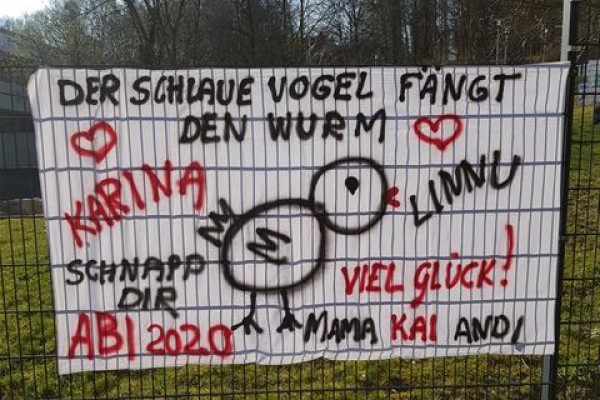 DER SCHLAUE VOGEL FÄNGT
DEN WURM
KARINA
LINNU
SCHNAPP
DIR
ABI 2020
VIEL GLÜCK!
MAMA KAI ANDI